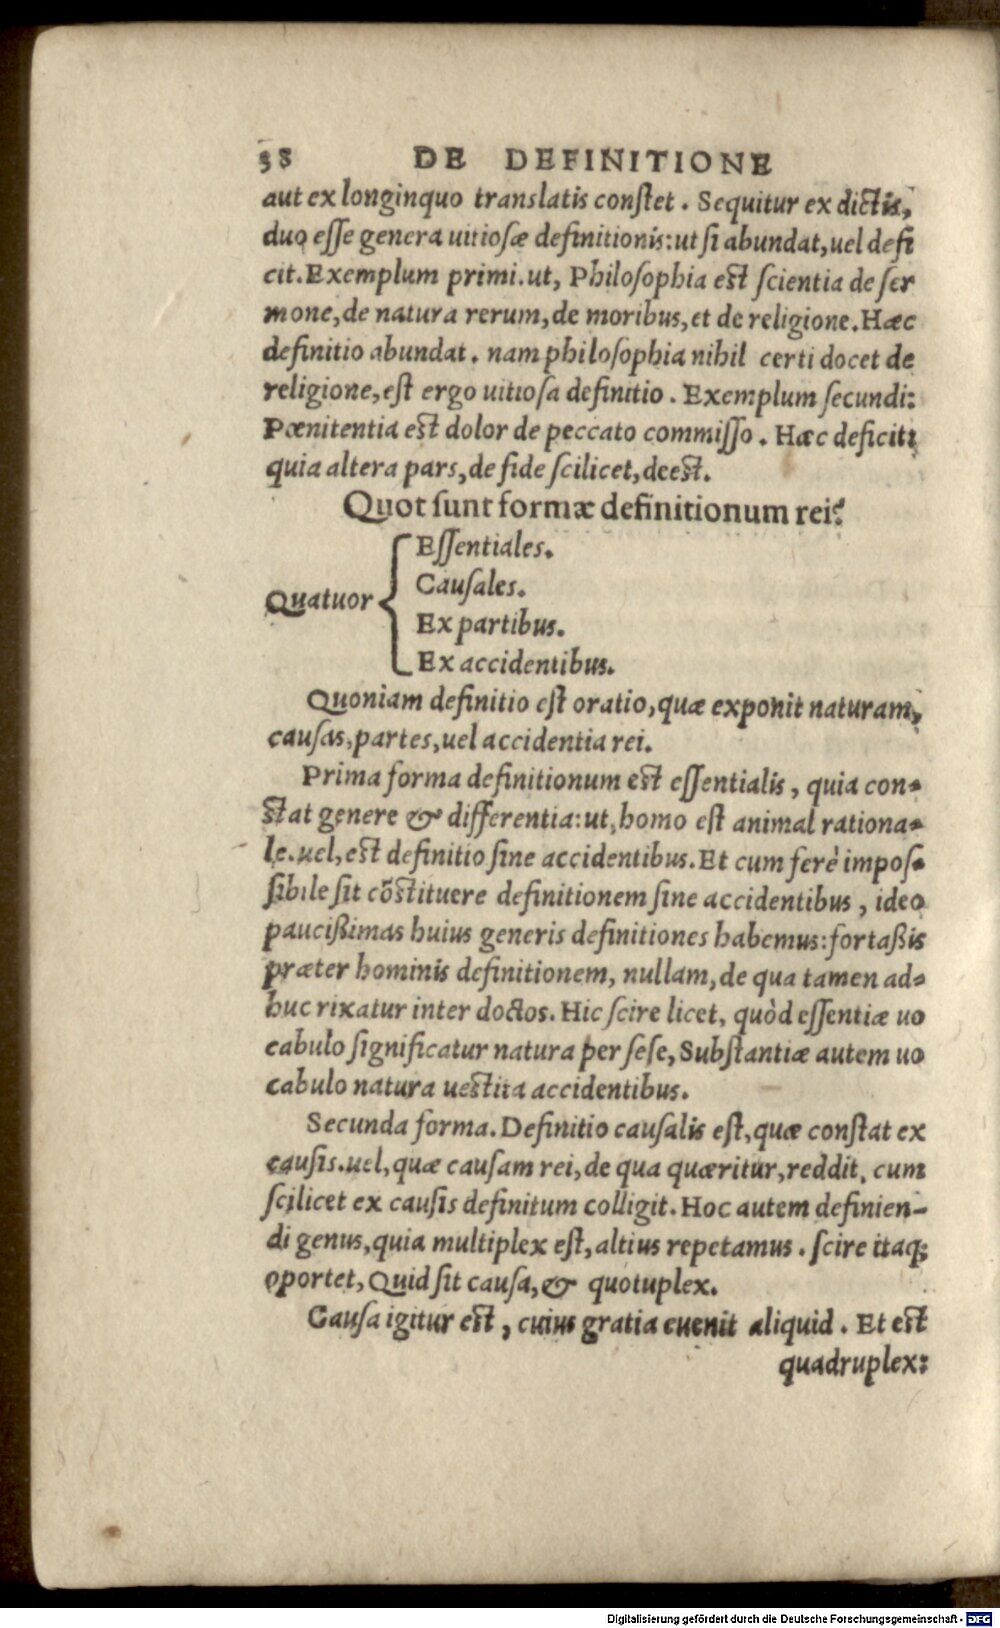 38 DE DEFINITIONE
aut ex longinquo translatis conſtet. Sequitur ex dictis,
duo eſſe genera uitioſæ definitionis: ut ſi abundat, uel defi
cit. Exemplum primi. ut, Philoſophia eſt ſcientia de ſer
mone, de natura rerum, de moribus, et de religione. Hæc
definitio abundat. nam philoſophia nihil certi docet de
religione, eſt ergo uitioſa definitio. Exemplum ſecundi:
Pœnitentia eſt dolor de peccato commiſſo. Hæc deficit:
quia altera pars, de fide ſcilicet, deeſt.
Quot ſunt formæ definitionum rei?
Quatuor
Eſſentiales.
Cauſales.
Ex partibus.
Ex accidentibus.
Quoniam definitio eſt oratio, quæ exponit naturam,
cauſas, partes, uel accidentia rei.
Prima forma definitionum eſt eſſentialis, quia con-
ſtat genere & differentia: ut, homo eſt animal rationa-
le. uel, eſt definitio ſine accidentibus. Et cum ferè impoſ-
ſibile ſit cōſtituere definitionem ſine accidentibus, ideo
pauciſsimas huius generis definitiones habemus: fortaſsis
præter hominis definitionem, nullam, de qua tamen ad-
huc rixatur inter doctos. Hic ſcire licet, quòd eſſentiæ uo
cabulo ſignificatur natura per ſeſe, Subſtantiæ autem uo
cabulo natura ueſtita accidentibus.
Secunda forma. Definitio cauſalis eſt, quæ conſtat ex
cauſis. uel, quæ cauſam rei, de qua quæritur, reddit, cum
ſcilicet ex cauſis definitum colligit. Hoc autem definien-
di genus, quia multiplex eſt, altius repetamus. ſcire itaq;
oportet, Quid ſit cauſa, & quotuplex.
Cauſa igitur eſt, cuius gratia euenit aliquid. Et eſt
quadruplex:
Digitalisierung gefördert durch die Deutsche Forschungsgemeinschaft - DFG